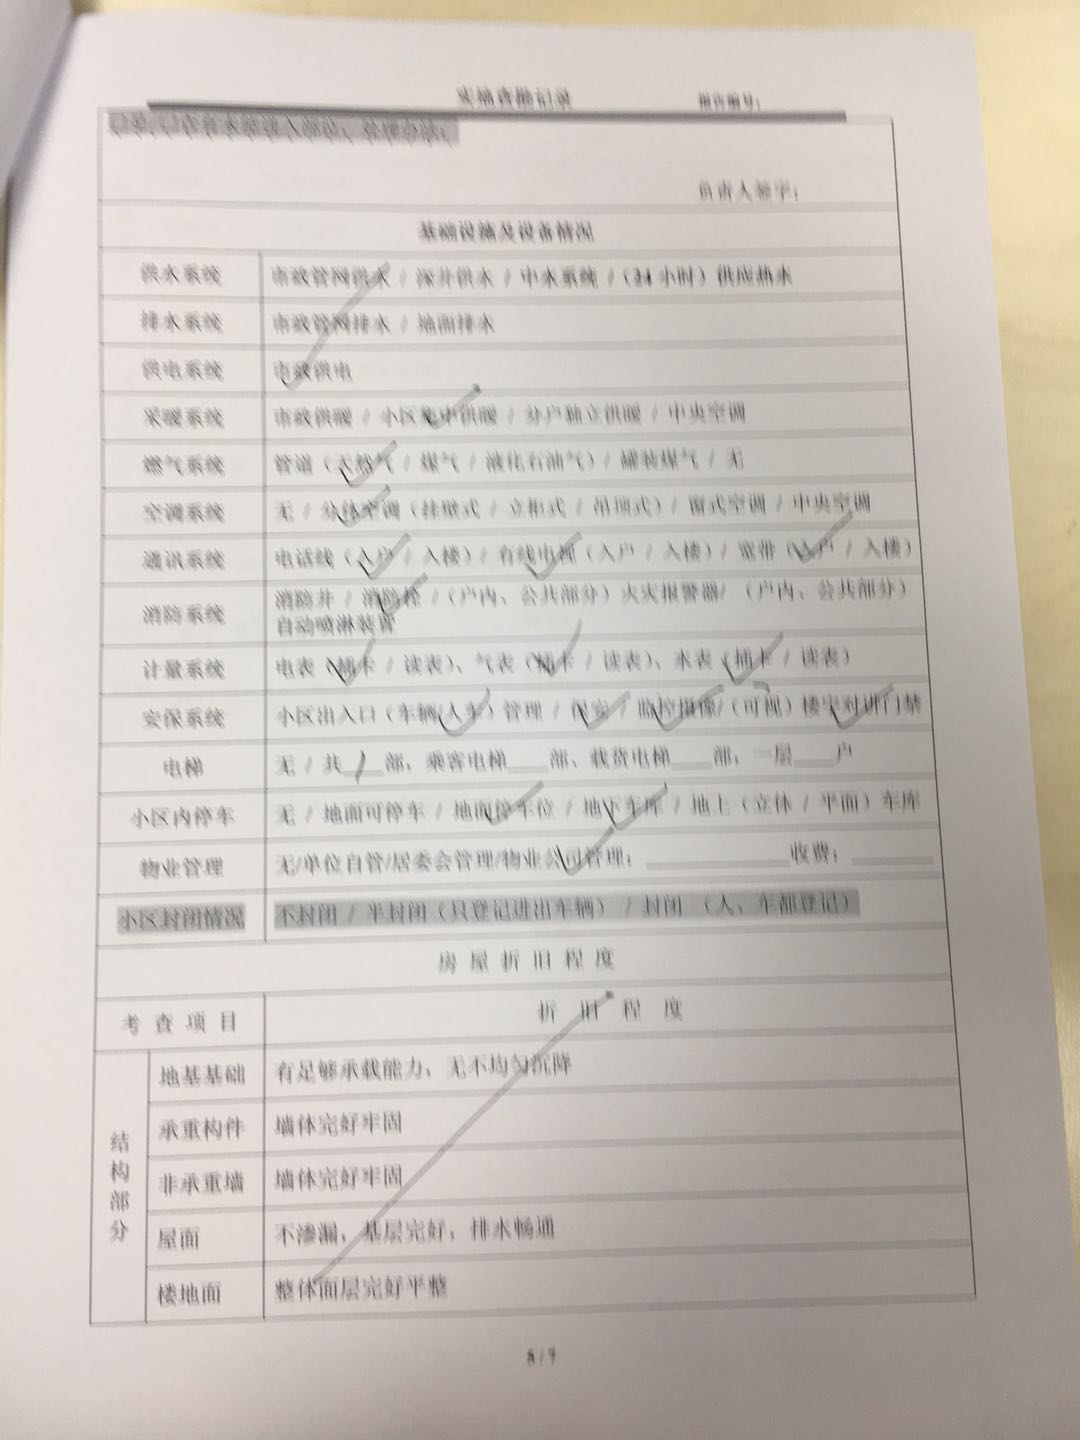 实地查勘记录 报告编号：
负责人签字：
基础设施及设备情况
供水系统 市政管网供水 / 深井供水 / 中水系统 /（24 小时）供应热水
排水系统 市政管网排水 / 地面排水
供电系统 市政供电
采暖系统 市政供暖 / 小区集中供暖 / 分户独立供暖 / 中央空调
燃气系统 管道（天然气 / 煤气 / 液化石油气）/ 罐装煤气 / 无
空调系统 无 / 分体空调（挂壁式 / 立柜式 / 吊顶式）/ 窗式空调 / 中央空调
通讯系统 电话线（入户 / 入楼）/ 有线电视（入户 / 入楼）/ 宽带（入户 / 入楼）
消防系统 消防井 / 消防栓 /（户内、公共部分）火灾报警器/ （户内、公共部分）
自动喷淋装置
计量系统 电表（插卡 / 读表）、气表（插卡 / 读表）、水表（插卡 / 读表）
安保系统 小区出入口（车辆/人车）管理 / 保安 / 监控摄像/（可视）楼宇对讲门禁
电梯 无 / 共___部，乘客电梯___部、载货电梯___部，一层___户
小区内停车 无 / 地面可停车 / 地面停车位 / 地下车库 / 地上（立体 / 平面）车库
物业管理 无/单位自管/居委会管理/物业公司管理：__________ 收费：______
小区封闭情况 不封闭 / 半封闭（只登记进出车辆） / 封闭 （人、车都登记）
房 屋 折 旧 程 度
考 查 项 目 折 旧 程 度
结构部分
地基基础 有足够承载能力、无不均匀沉降
承重构件 墙体完好牢固
非承重墙 墙体完好牢固
屋面 不渗漏，基层完好，排水畅通
楼地面 整体面层完好平整